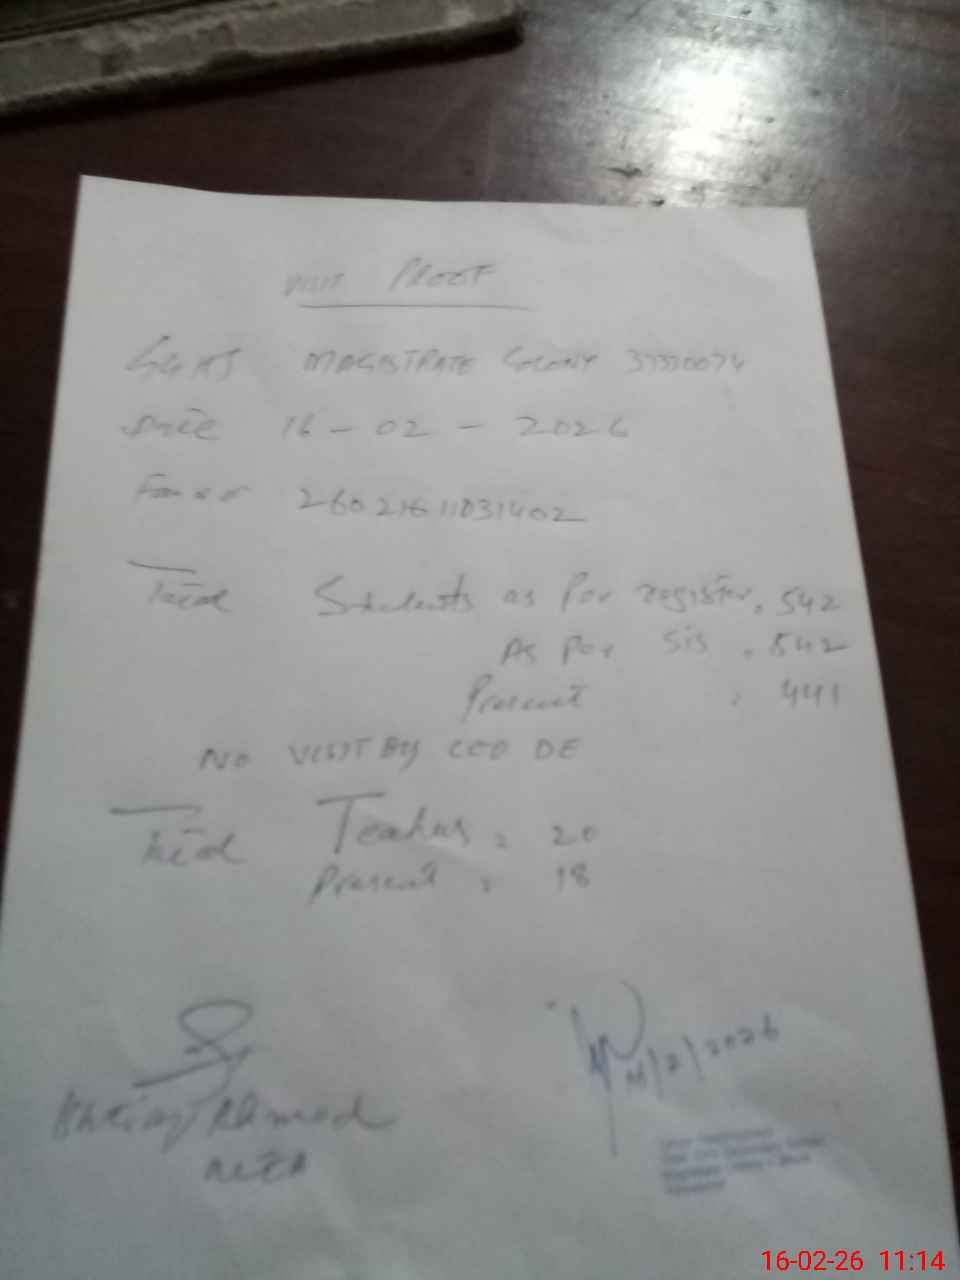 VISIT PROOF
MAGISTRATE COLONY 37330074
Date 16-02-2026
26021611031402
Total Students as Per register. 542
As Per SIS . 542
Present . 441
NO VISIT BY CEO DE
Total Teachers . 20
Present . 18
16/2/2026
Ahmed
16-02-26 11:14